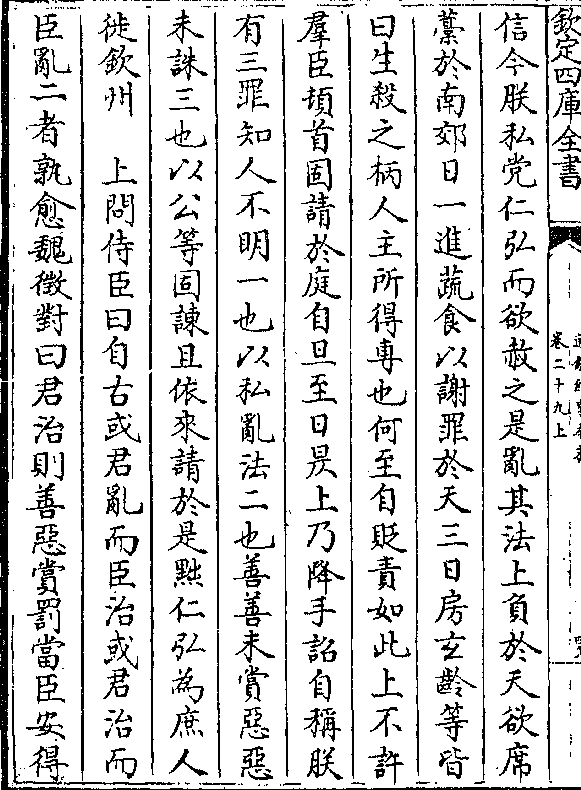 欽定四庫全書
卷二十九上
信今朕私党仁弘而欲赦之是亂其法上負於天欲席
藁於南郊日一進蔬食以謝罪於天三日房玄齡等皆
曰生殺之柄人主所得専也何至自貶責如此上不許
羣臣頓首固請於庭自旦至日昃上乃降手詔自稱朕
有三罪知人不明一也以私亂法二也善善未賞惡惡
未誅三也以公等固諫且依來請於是黜仁弘為庶人
徙欽州　上問侍臣曰自古或君亂而臣治或君治而
臣亂二者孰愈魏徵對曰君治則善惡賞罰當臣安得